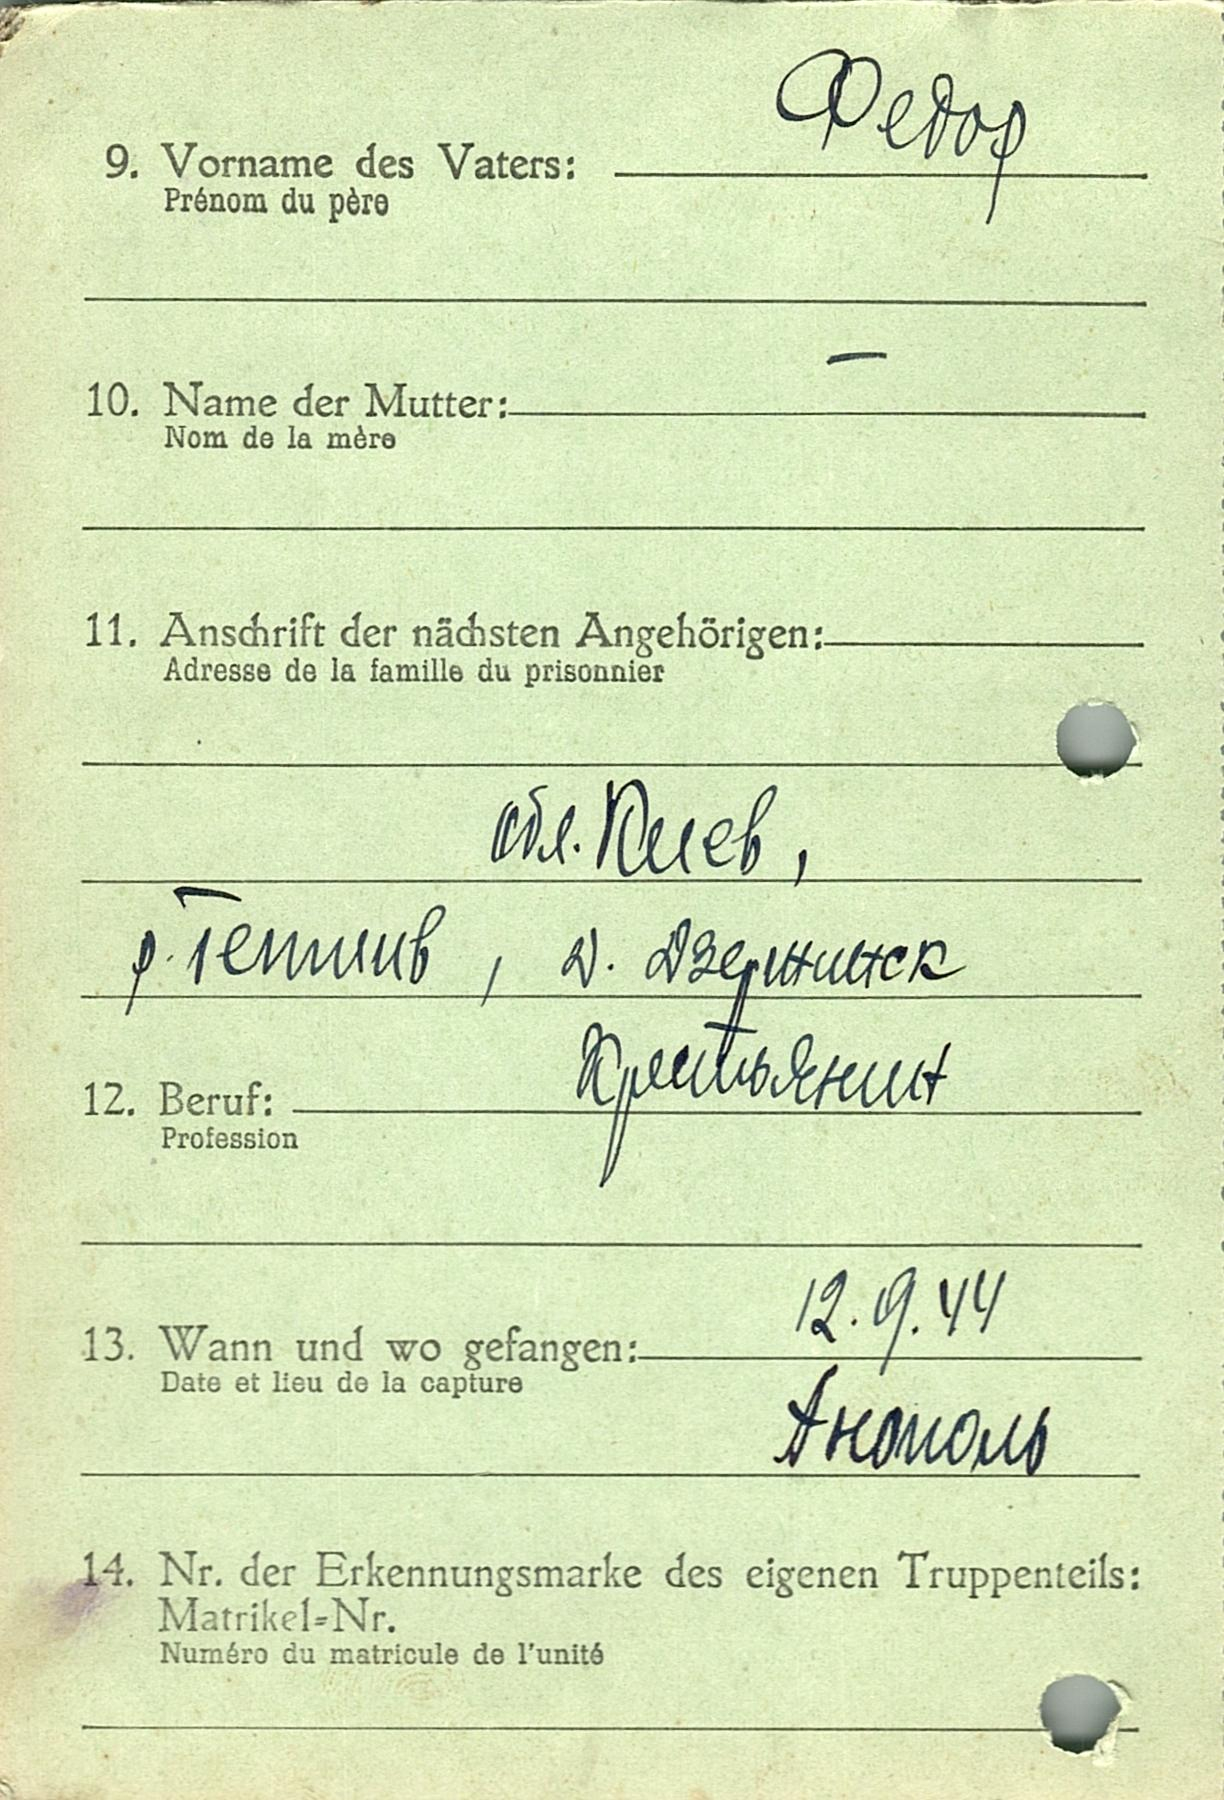 9. Vorname des Vaters: Федор
Prénom du père
10. Name der Mutter: —
Nom de la mère
11. Anschrift der nächsten Angehörigen:
Adresse de la famille du prisonnier
обл. Киев,
р. Теплив, д. Дзержинск
12. Beruf: Крестьянин
Profession
13. Wann und wo gefangen: 12.9.44
Date et lieu de la capture
Анополь
14. Nr. der Erkennungsmarke des eigenen Truppenteils:
Matrikel=Nr.
Numéro du matricule de l'unité